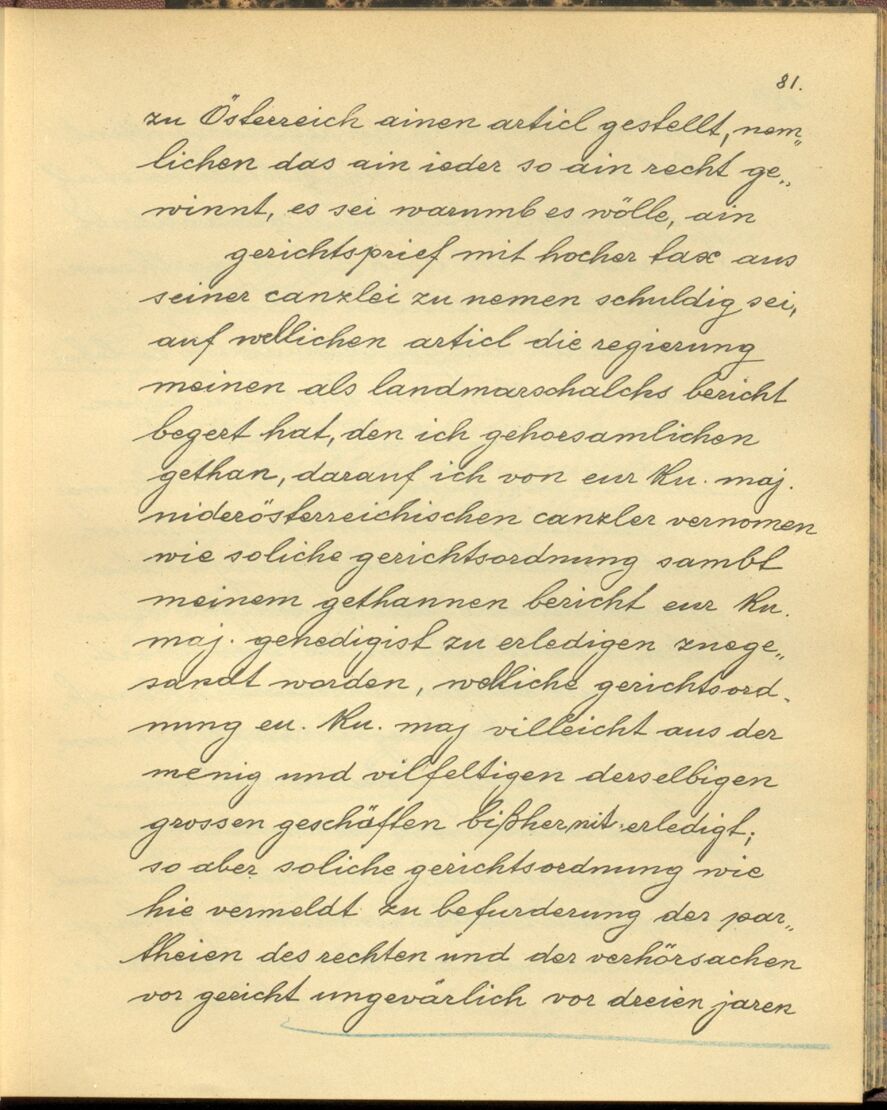 81.
zu Österreich ainen articl gestellt, nem„
lichen das ain ieder so ain recht ge„
winnt, es sei warumb es wölle, ain
gerichtsprief mit hocher tax aus
seiner canzlei zu nemen schuldig sei,
auf wellichen articl die regierung
meinen als landmarschalchs bericht
begert hat, den ich gehorsamlichen
gethan, darauf ich von eur Ku. maj.
niderösterreichischen canzler vernomen
wie soliche gerichtsordnung sambt
meinem gethannen bericht eur Ku.
maj. genedigist zu erledigen zuege„
sandt worden, welliche gerichtsord„
nung eu. Ku. maj villeicht aus der
menig und vilfeltigen derselbigen
grossen geschäften bißher nit erledigt;
so aber soliche gerichtsordnung wie
hie vermeldt zu befurderung der par„
theien des rechten und der verhörsachen
vor gericht ungevärlich vor dreien jaren